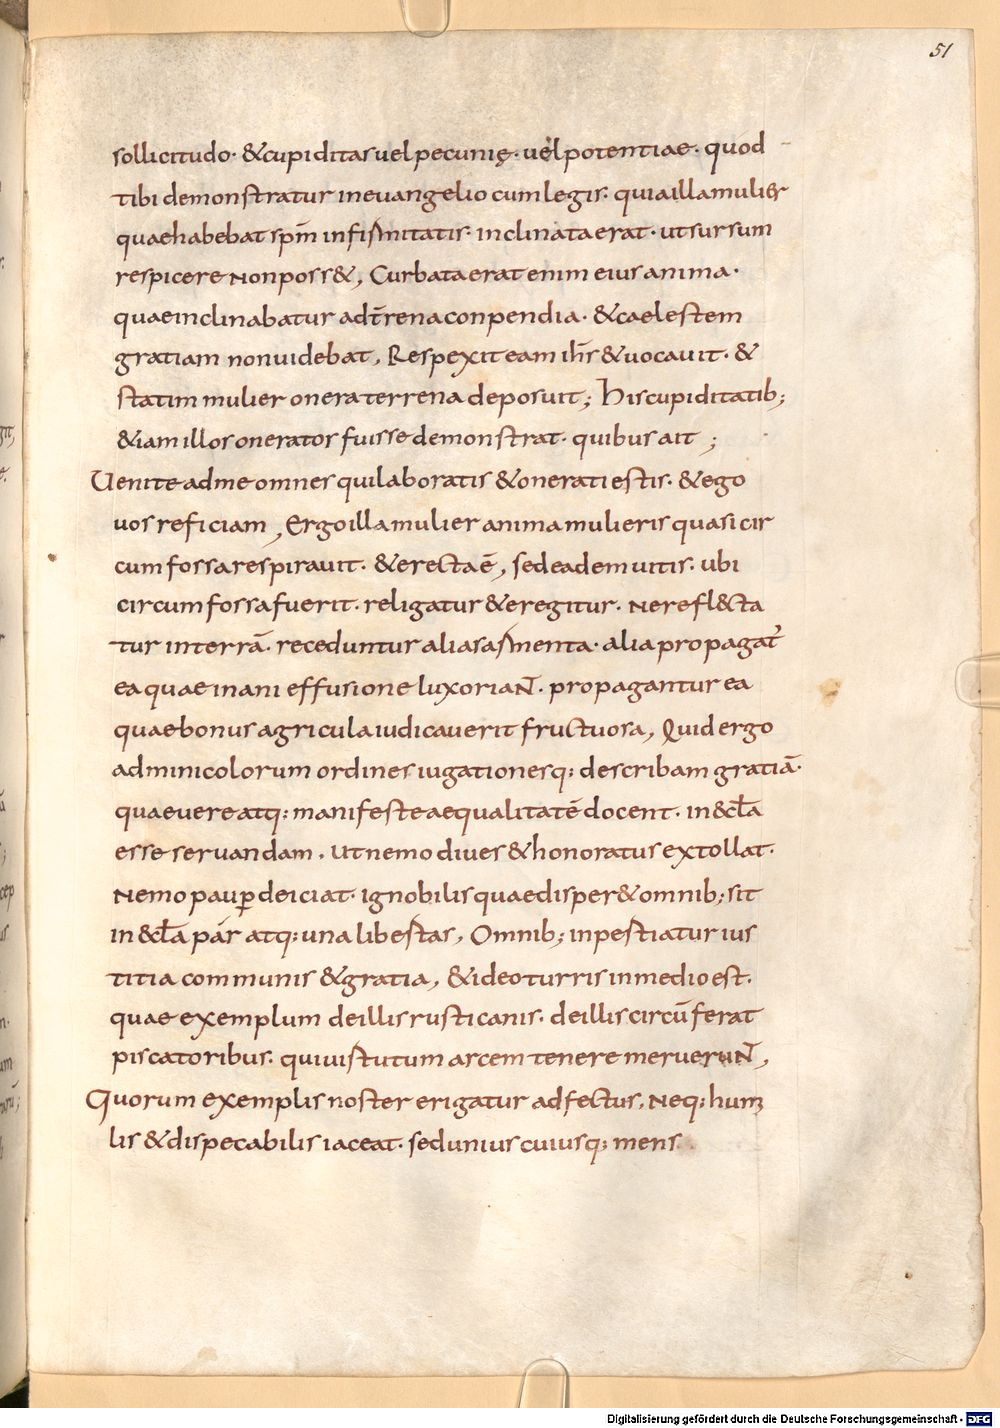 51
sollicitudo· &cupiditas uel pecunię· uel potentiae· quod
tibi demonstratur in euangelio cum legis· quia illa mulier
quae habebat spm̄ infirmitatis· inclinata erat· ut sursum
respicere non poss&, Curbata erat enim eius anima·
quae inclinabatur ad tr̄rena conpendia· & caelestem
gratiam non uidebat, Respexit eam ihs̄ & uocauit· &
statim mulier onera terrena deposuit; His cupiditatib;
&iam illos onerator fuisse demonstrat· quibus ait ;
Uenite ad me omnes qui laboratis & onerati estis· & ego
uos reficiam, Ergo illa mulier anima mulieris quasi cir
cumfossa respirauit· & erecta ē, sed eadem uitis· ubi
circumfossa fuerit· religatur & eregitur· Ne refl&cta
tur in terrā· receduntur alia sarmenta· alia propagat̄
ea quae inani effusione luxoriant· propagantur ea
quae bonus agricula iudicauerit fructuosa, Quid ergo
adminicolorum ordines iugationesq: describam gratiā·
quae uere atq: manifeste aequalitatē docent· in &cl̄a
esse seruandam· Ut nemo diues & honoratus extollat·
Nemo paup̱ deiciat· ignobilis quae disper& omnib; sit
in &cl̄a par atq: una libestas, Omnib; inpestiatur ius
titia communis & gratia, & ideo turris in medio est·
quae exemplum de illis rusticanis· de illis circū ferat
piscatoribus· qui uistutum arcem tenere meruerunt,
Quorum exemplis noster erigatur adfectus, Neq: humi
lis & dispecabilis iaceat· sed unius cuiusq: mens
Digitalisierung gefördert durch die Deutsche Forschungsgemeinschaft - DFG